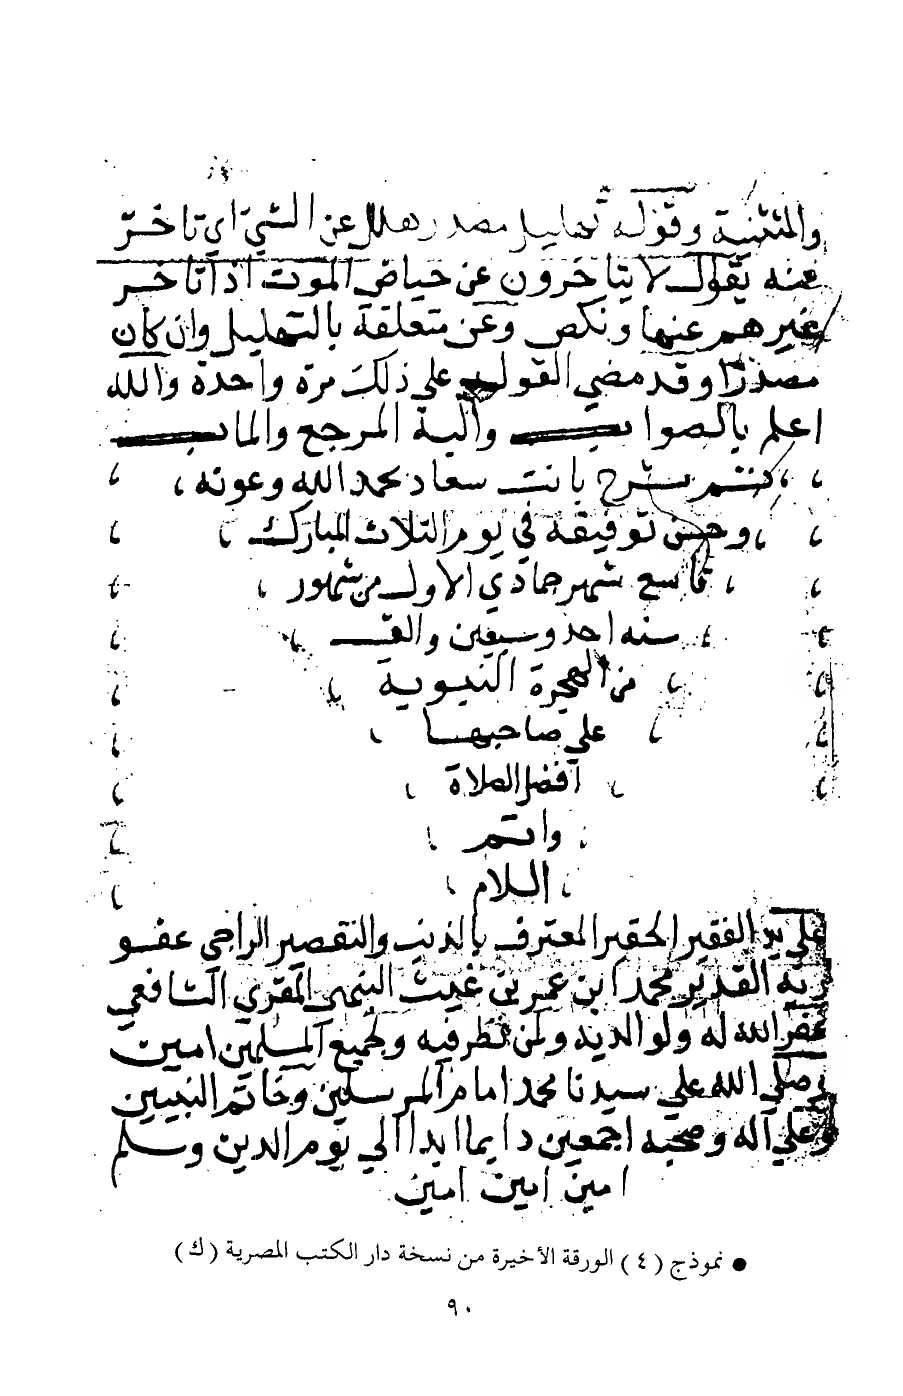 والتثنية وقوله تهليل مصدر هلل عن الشئ اي تاخر
عنه يقول لا يتاخرون عن حياض الموت اذا تاخر
غيرهم عنها ونكص وعن متعلقة بالتهليل وان كان
مصدرا وقد مضي القول علي ذلك مرة واحدة والله
اعلم بالصواب واليه المرجع والماب
تم شرح بانت سعاد بحمد الله وعونه
وحسن توفيقه في يوم الثلاث المبارك
تاسع شهر جمادي الاول من شهور
سنه احد وسبعين والف
من الهجرة النبوية
علي صاحبها
افضل الصلاة
واتم
السلام
علي يد الفقير الحقير المعترف بالذنب والتقصير الراجي عفو
ربه القدير محمد ابن عمر بن غيث المقري الشافعي
غفر الله له ولوالديه ولمن نظر فيه ولجميع المسلمين امين
وصلي الله علي سيدنا محمد امام المرسلين وخاتم النبيين
وعلي اله وصحبه اجمعين دايما ابدا الي يوم الدين وسلم
امين امين امين
● نموذج (٤) الورقة الأخيرة من نسخة دار الكتب المصرية (ك)
٩٠